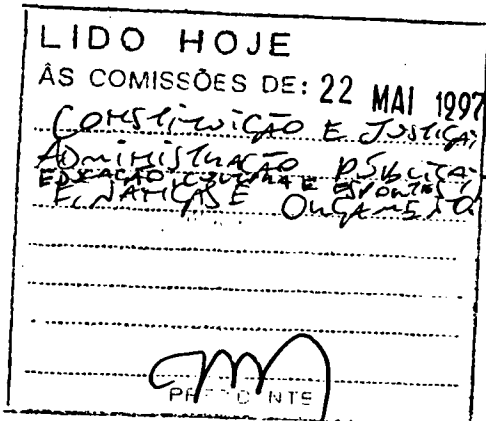 LIDO HOJE
ÀS COMISSÕES DE: 22 MAI 1997
CONSTITUIÇÃO E JUSTIÇA;
ADMINISTRAÇÃO PÚBLICA;
EDUCAÇÃO, CULTURA E ESPORTES;
FINANÇAS E ORÇAMENTO.
PRESIDENTE